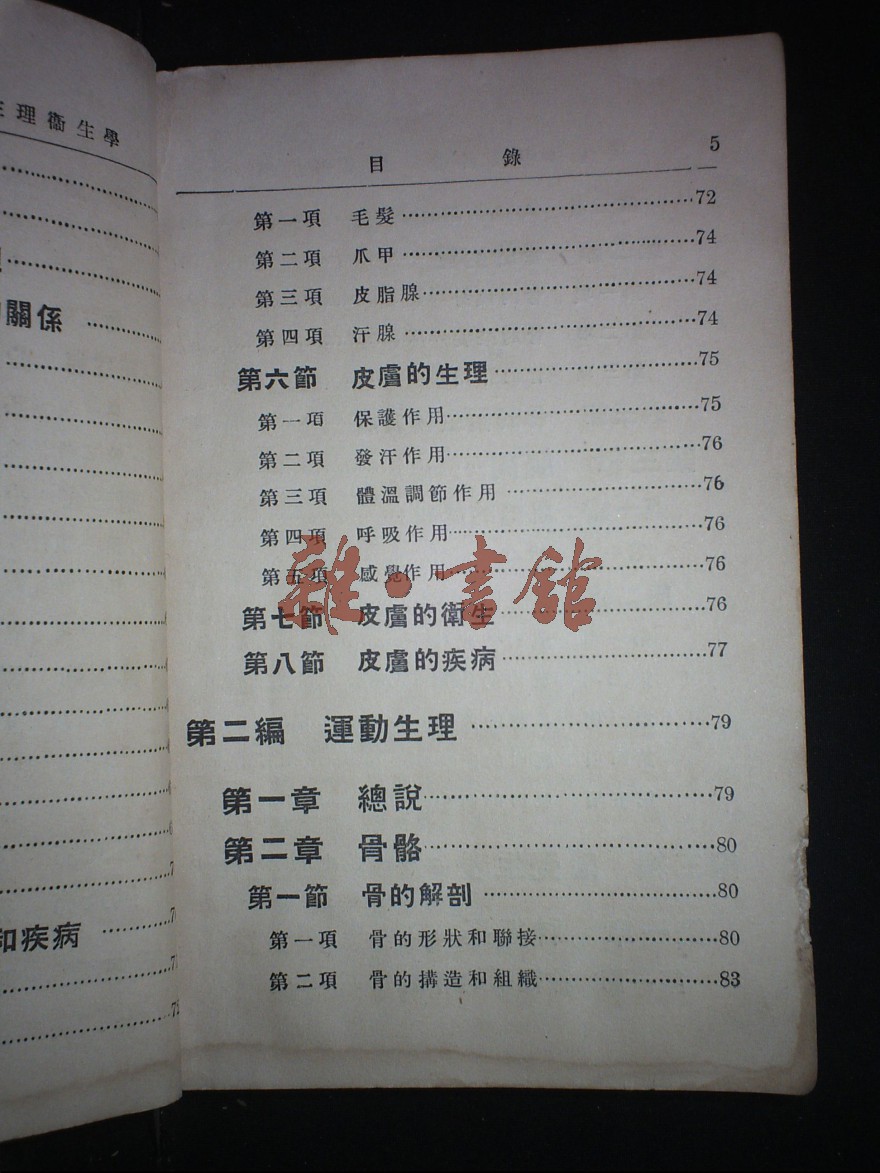 生理衞生學
關係
和疾病
目錄 5
第一項 毛髮……72
第二項 爪甲……74
第三項 皮脂腺……74
第四項 汗腺……74
第六節 皮膚的生理……75
第一項 保護作用……75
第二項 發汗作用……76
第三項 體溫調節作用……76
第四項 呼吸作用……76
第五項 感覺作用……76
第七節 皮膚的衛生……76
第八節 皮膚的疾病……77
第二編 運動生理……79
第一章 總說……79
第二章 骨骼……80
第一節 骨的解剖……80
第一項 骨的形狀和聯接……80
第二項 骨的搆造和組織……83
雜·書館